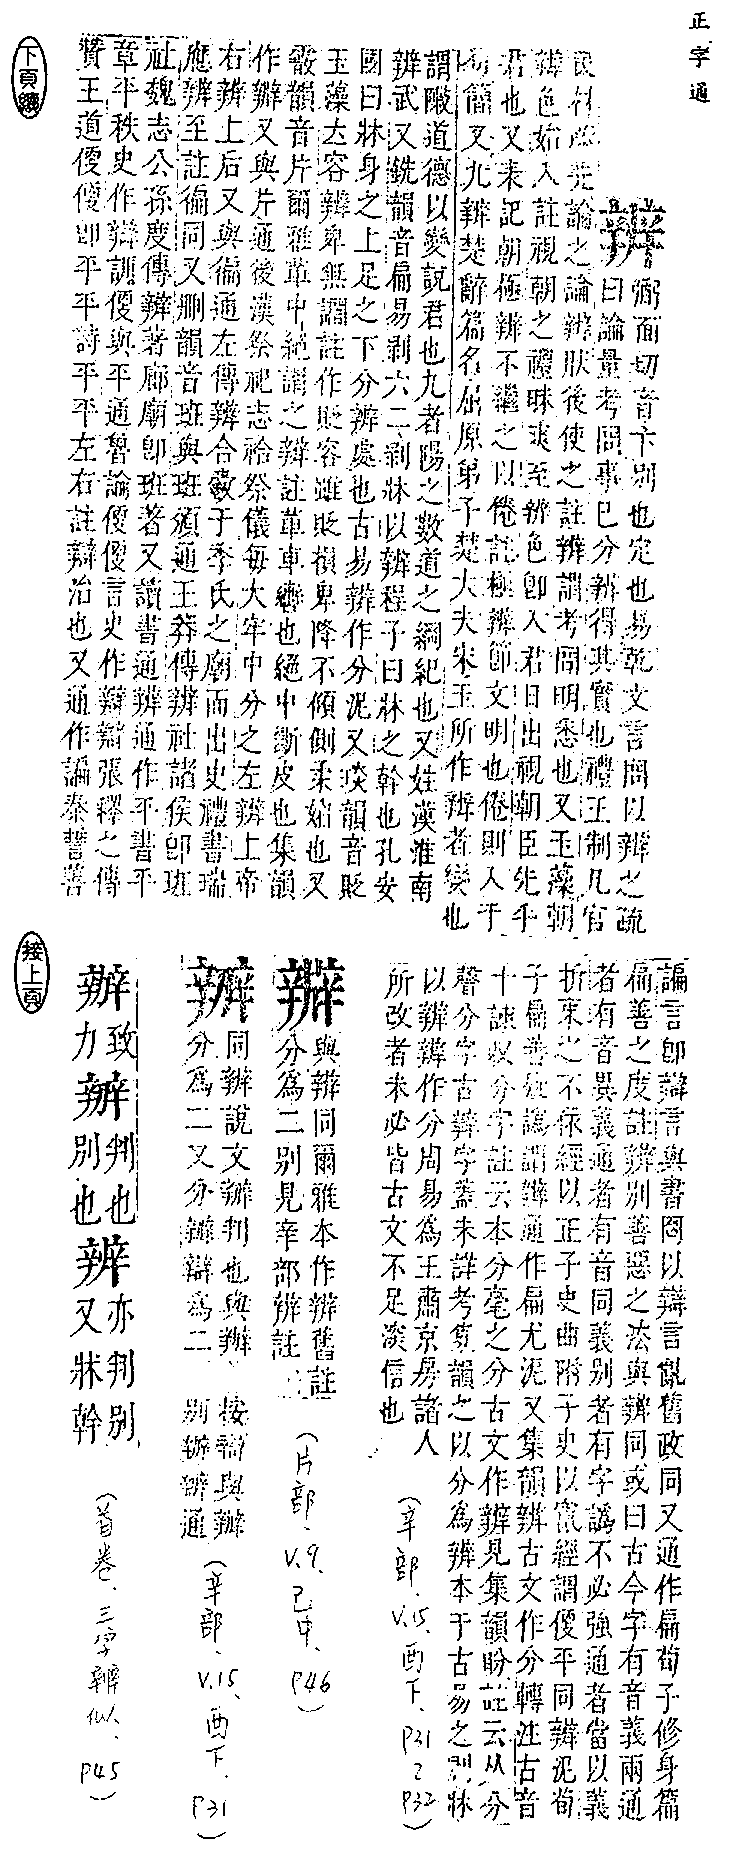 正字通
辨
弼面切音卞別也定也易乾文言問以辨之疏
曰論量考問事已分辨得其實也禮王制凡官
民材必先論之論辨然後使之註辨謂考問明悉也又玉藻朝
辨色始入註視朝之禮昧爽至辨色卽入君日出視朝臣先乎
君也又宋記朝極辨不繼之以倦註極辨節文明也倦則入于
易簡又九辨楚辭篇名屈原弟子楚大夫宋玉所作辨者變也
謂敶道德以變說君也九者陽之數道之綱紀也又姓漢淮南
辨武又銑韻音扁易剥六二剥牀以辨程子曰牀之幹也孔安
國曰牀身之上足之下分辨處也古易辨作分泥又琰韻音貶
玉藻立容辨卑無讇註作貶容雖貶損卑降不傾側柔媚也又
霰韻音片爾雅革中絕謂之辨註革車轡也絕中斷皮也集韻
作辦又與片通後漢祭祀志祫祭儀每大牢中分之左辨上帝
右辨上后又與徧通左傳辨合敬于季氏之廟而出史禮書瑞
應辨至註徧同又刪韻音班與班頒通王莽傳辨社諸侯卽班
社魏志公孫度傳辨著廊廟卽班著又讀書通辨通作平書平
章平秩史作辯訓便與平通魯論便便言史作辯辯張釋之傳
贊王道便便卽平平詩平平左右註辯治也又通作諞秦誓善
下頁續
接上頁
諞言卽辯言與書罔以辯言亂舊政同又通作扁荀子修身篇
扁善之度註辨別善惡之法與辨同或曰古今字有音義兩通
者有音異義通者有音同義別者有字譌不必強通者當以義
折衷之不依經以正子史曲附子史以竄經謂便平同辨泥荀
子扁善㪅譌謂辨通作扁尤泥又集韻辨古文作分轉注古音
十諫收分字註云本分毫之分古文作辨見集韻盼註云从分
聲分字古辨字蓋未詳考集韻之以分為辨本于古易之剥牀
以辨辨作分周易為王肅京房諸人
所改者未必皆古文不足淡信也
(辛部、V.15、酉下、P31~P32)
辦
與辨同爾雅本作辨舊註
分為二別見辛部辨註
(片部、V.9、巳中、P46)
辧
同辨說文辧判也與辦
分為二又分辧辯為二
按辯與辦
別辧辨通
(辛部、V.15、酉下、P31)
辦
致力
辧
判也別也
辨
亦判別又牀幹
(首卷、三字辨似、P45)